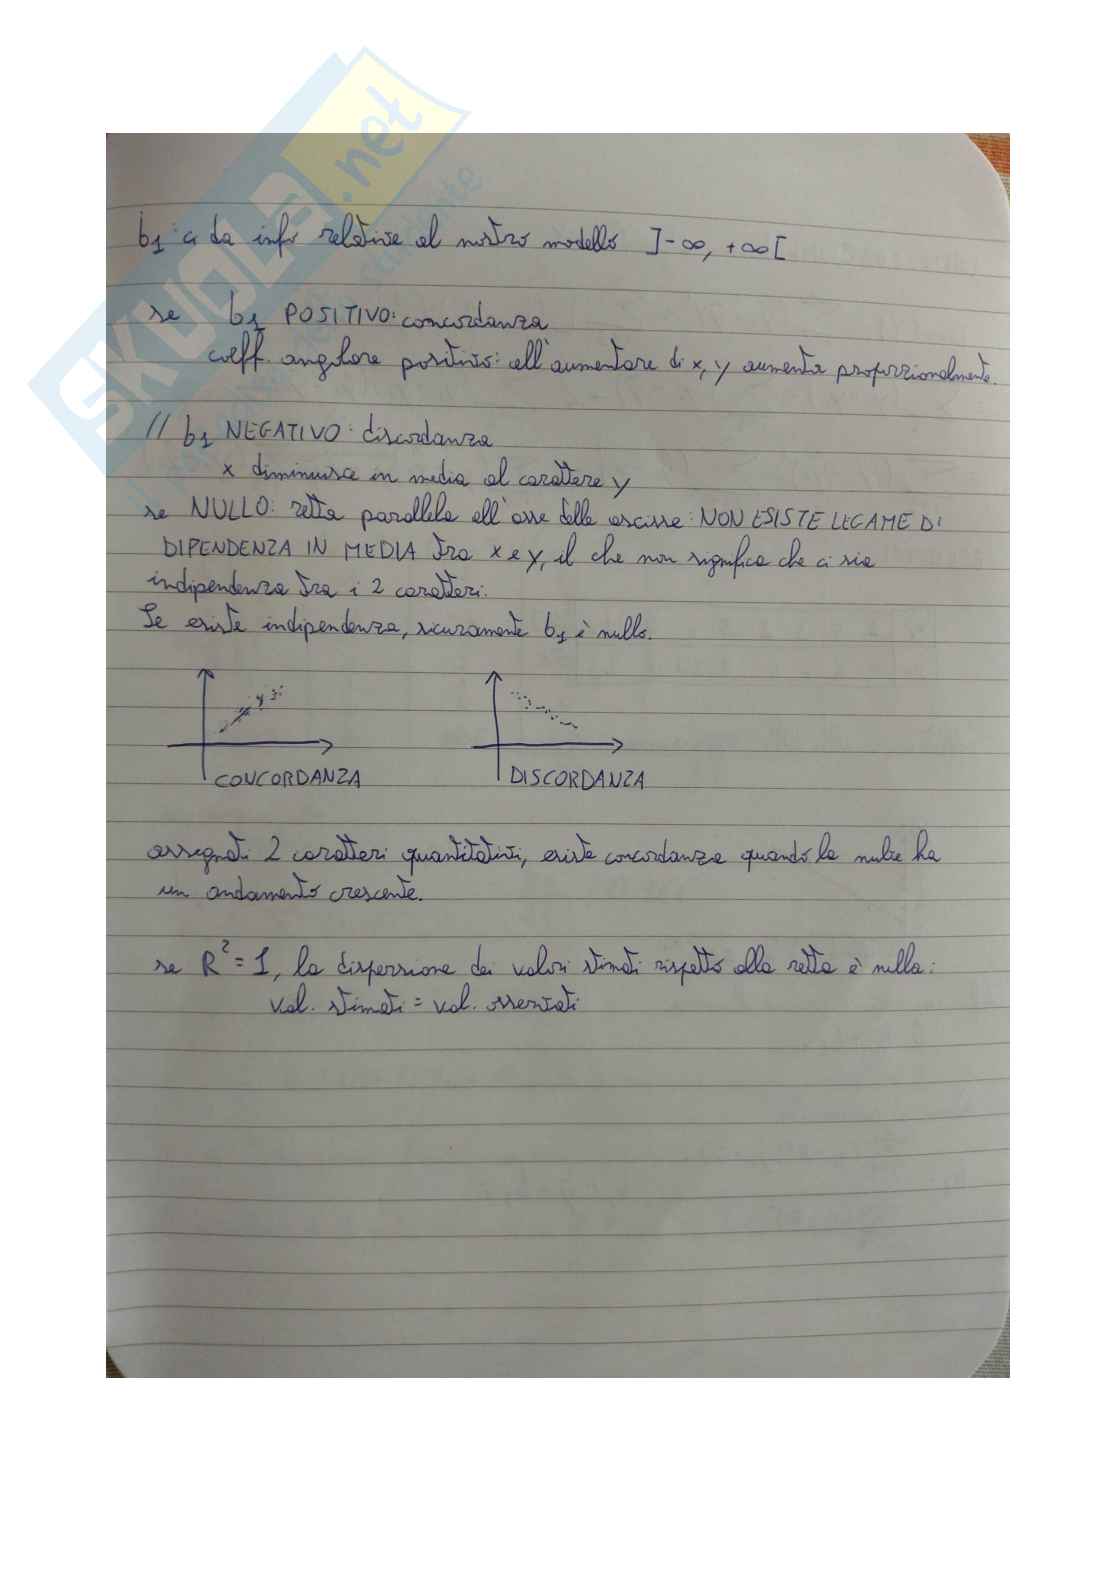 SKUOLA.net
b1 ci da info relative al nostro modello ]-∞, +∞[
se b1 POSITIVO: concordanza
coeff. angolare positivo: all'aumentare di x, y aumenta proporzionalmente.
// b1 NEGATIVO: discordanza
x diminuisce in media al carattere y
se NULLO: retta parallela all'asse delle ascisse: NON ESISTE LEGAME DI
DIPENDENZA IN MEDIA tra x e y, il che non significa che ci sia
indipendenza tra i 2 caratteri.
Se esiste indipendenza, sicuramente b1 è nullo.
CONCORDANZA DISCORDANZA
assegnati 2 caratteri quantitativi, esiste concordanza quando la nube ha
un andamento crescente.
se R²=1, la dispersione dei valori stimati rispetto alla retta è nulla:
val. stimati = val. osservati